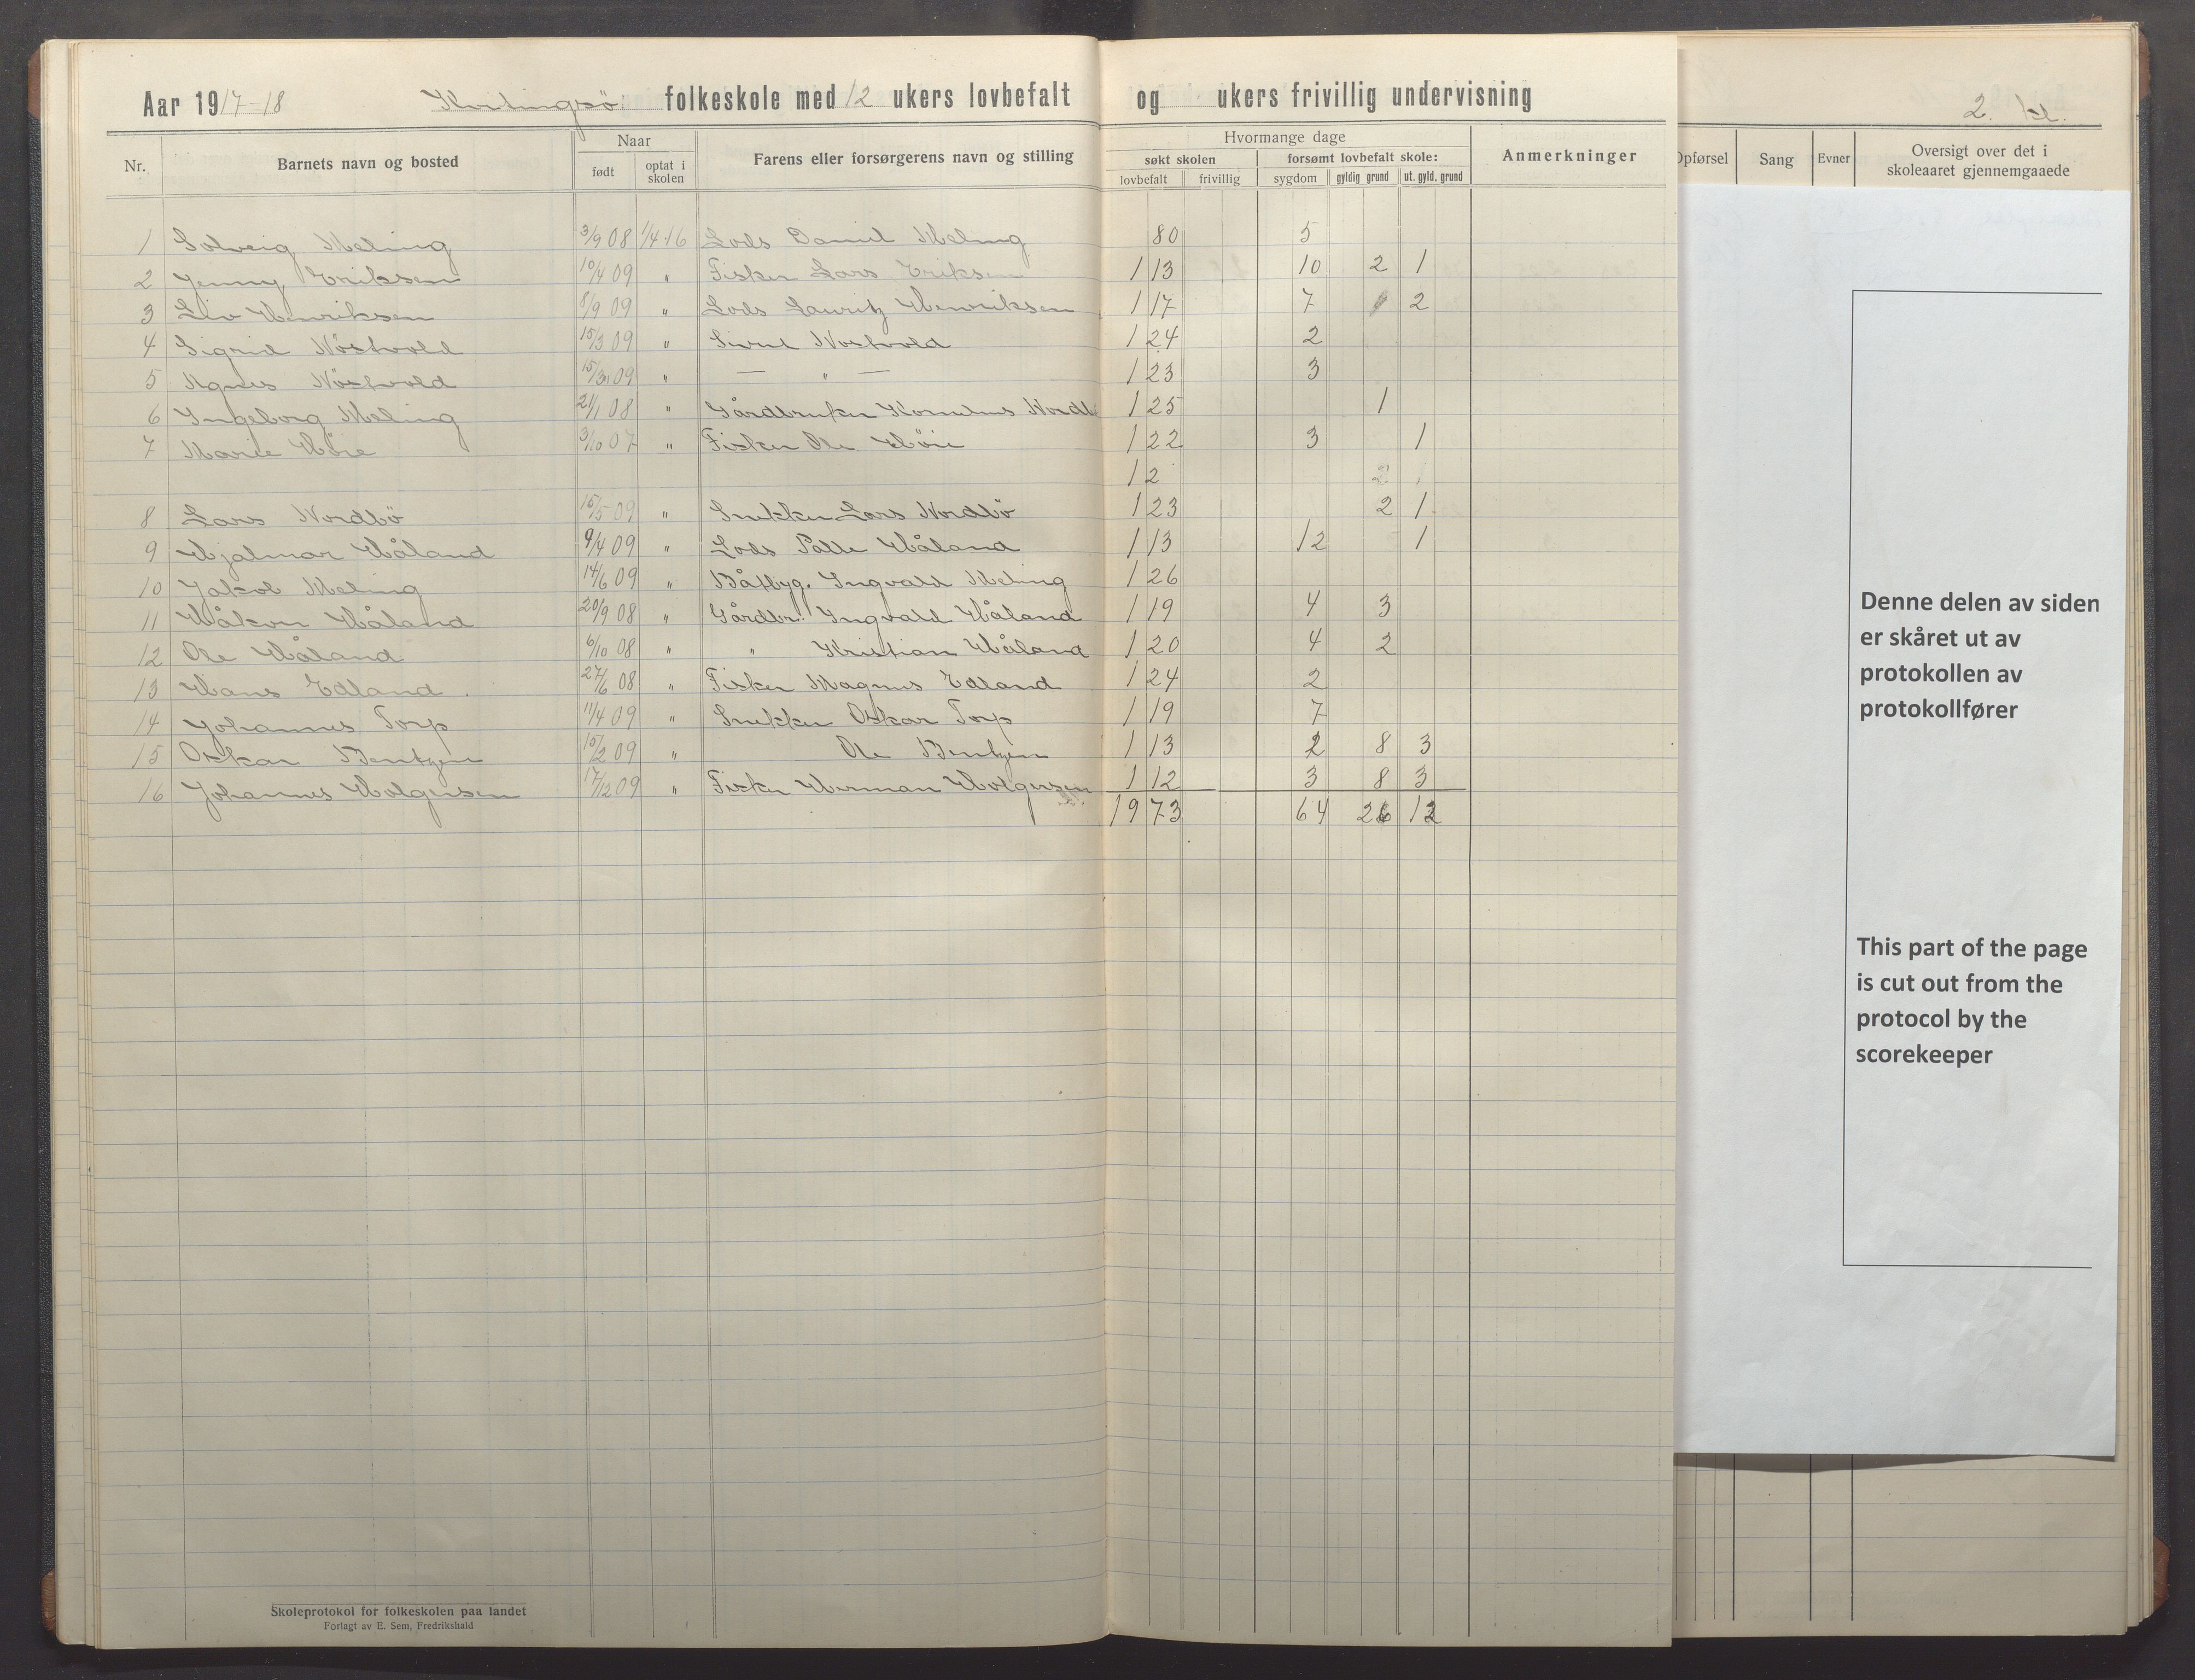 Aar 1917-18 Kvitingsö folkeskole med 12 ukers lovbefalt og ukers frivillig undervisning
2. kl.
Nr. Barnets navn og bosted Naar Farens eller forsørgerens navn og stilling Hvormange dage Anmerkninger Opførsel Sang Evner Oversigt over det i skoleaaret gjennemgaaede
født optat i skolen søkt skolen forsømt lovbefalt skole:
lovbefalt frivillig sygdom gyldig grund ut. gyld. grund
1 Solveig Meling 3/9 08 1/4 16 Lods Daniel Meling 80 5
2 Jenny Eriksen 10/4 09 " Fisker Lars Eriksen 113 10 2 1
3 Liv Henriksen 8/9 09 " Lods Lauritz Henriksen 117 7 2
4 Sigrid Nöstvold 15/3 09 " Nostvold 124 2
5 Agnes Nöstvold 15/3 09 " — " — 123 3
6 Ingeborg Meling 21/1 08 " Gårdbruker Kornelius Nordb 125 1
7 Marie Höie 3/10 07 " Fisker Ole Höie 122 3 1
12 2 1
8 Lars Nordbö 15/5 09 " Snekker Lars Nordbö 123 2 1
9 Hjalmar Håland 9/4 09 " Lods Palle Håland 113 12 1
10 Jakob Meling 14/6 09 " Båtbyg. Ingvald Meling 126
11 Håkon Håland 20/9 08 " Gårdbr. Ingvald Håland 119 4 3
12 Ole Håland 6/10 08 " " Kristian Håland 120 4 2
13 Hans Edland 27/6 08 " Fisker Magnus Edland 124 2
14 Johannes Torp 11/4 09 " Snekker Oskar Torp 119 7
15 Oskar Bentzen 15/2 09 " Ole Bentzen 113 2 8 3
16 Johannes Holgersen 17/12 09 " Fisker Herman Holgersen 112 3 8 3
1973 64 26 12
Denne delen av siden
er skåret ut av
protokollen av
protokollfører
This part of the page
is cut out from the
protocol by the
scorekeeper
Skoleprotokol for folkeskolen paa landet
Forlagt av E. Sem, Fredrikshald